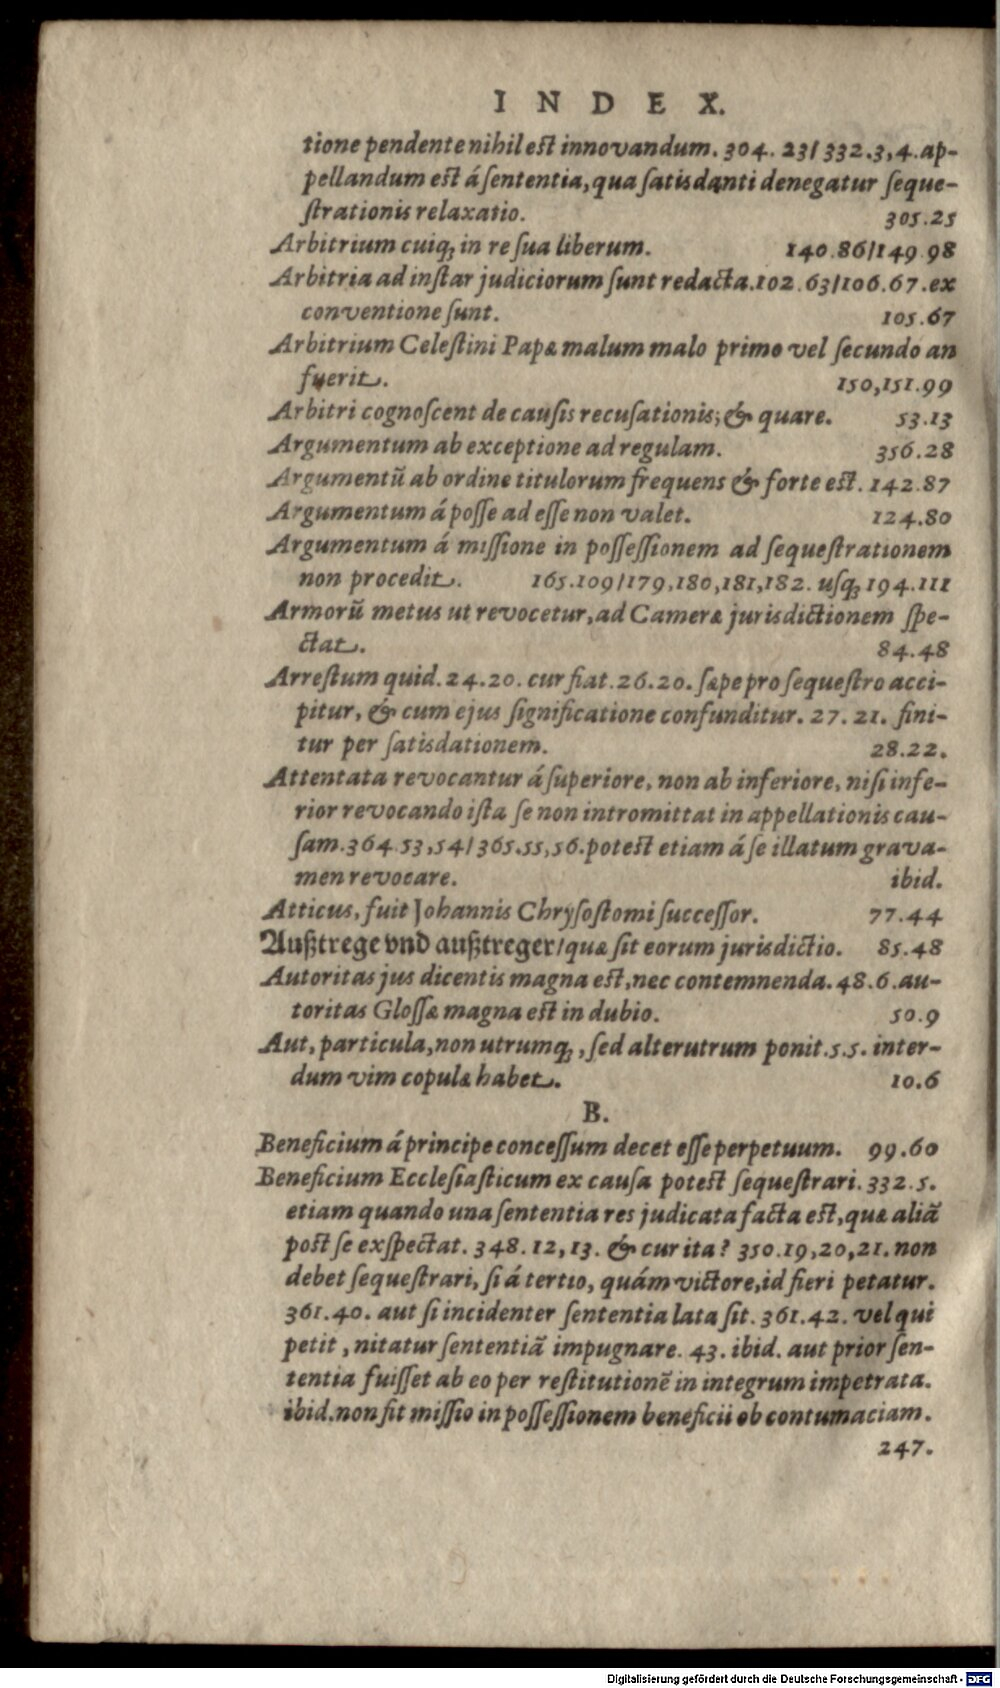 INDEX.
tione pendente nihil est innovandum. 304. 23/ 332.3, 4. ap-
pellandum est á sententia, qua satisdanti denegatur seque-
strationis relaxatio. 305.25
Arbitrium cuiq; in re sua liberum. 140.86/149.98
Arbitria ad instar judiciorum sunt redacta. 102.63/106.67. ex
conventione sunt. 105.67
Arbitrium Celestini Papæ malum malo primo vel secundo an
fuerit. 150,151.99
Arbitri cognoscent de causis recusationis; & quare. 53.13
Argumentum ab exceptione ad regulam. 356.28
Argumentũ ab ordine titulorum frequens & forte est. 142.87
Argumentum á posse ad esse non valet. 124.80
Argumentum á missione in possessionem ad sequestrationem
non procedit. 165.109/179,180,181,182. usq; 194.111
Armorũ metus ut revocetur, ad Cameræ jurisdictionem spe-
ctat. 84.48
Arrestum quid. 24.20. cur fiat. 26.20. sæpe pro sequestro acci-
pitur, & cum ejus significatione confunditur. 27. 21. fini-
tur per satisdationem. 28.22.
Attentata revocantur á superiore, non ab inferiore, nisi infe-
rior revocando ista se non intromittat in appellationis cau-
sam. 364.53,54/ 365.55,56. potest etiam á se illatum grava-
men revocare. ibid.
Atticus, fuit Johannis Chrysostomi successor. 77.44
Außtrege vnd außtreger/ quæ sit eorum jurisdictio. 85.48
Autoritas jus dicentis magna est, nec contemnenda. 48.6. au-
toritas Glossæ magna est in dubio. 50.9
Aut, particula, non utrumq;, sed alterutrum ponit. 5.5. inter-
dum vim copulæ habet. 10.6
B.
Beneficium á principe concessum decet esse perpetuum. 99.60
Beneficium Ecclesiasticum ex causa potest sequestrari. 332.5.
etiam quando una sententia res judicata facta est, quæ aliã
post se exspectat. 348.12,13. & cur ita? 350.19,20,21. non
debet sequestrari, si á tertio, quám victore, id fieri petatur.
361.40. aut si incidenter sententia lata sit. 361.42. vel qui
petit, nitatur sententiã impugnare. 43. ibid. aut prior sen-
tentia fuisset ab eo per restitutionẽ in integrum impetrata.
ibid. non fit missio in possessionem beneficii ob contumaciam.
247.
Digitalisierung gefördert durch die Deutsche Forschungsgemeinschaft - DFG